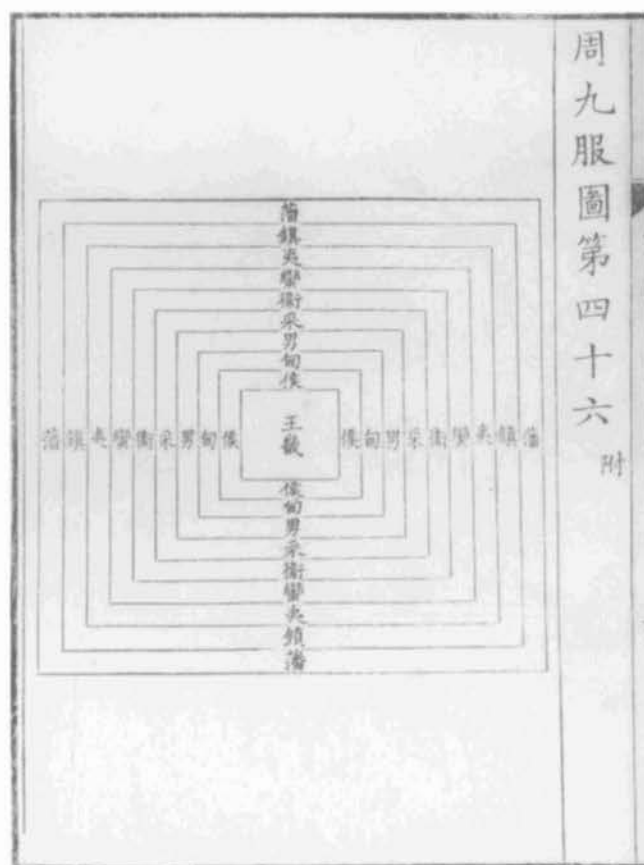 周九服圖第四十六 附
藩鎮夷蠻衛采男甸侯
藩鎮夷蠻衛采男甸侯 王畿 侯甸男采衛蠻夷鎮藩
侯甸男采衛蠻夷鎮藩